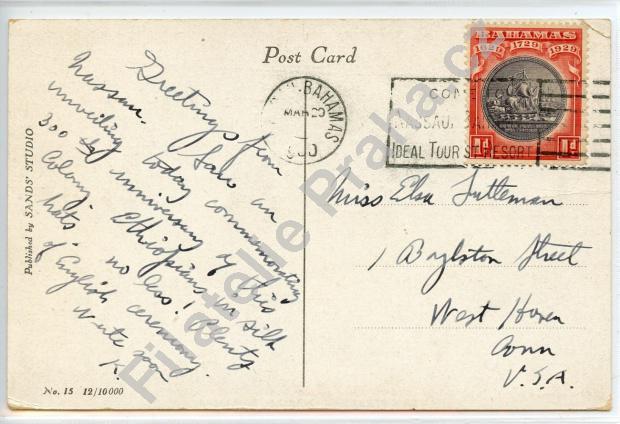 Post Card
BAHAMAS
1629 1729 1929
1d 1d
BAHAMAS
MAR 20
NASSAU, BA
IDEAL TOURIST RESORT
Greetings from
Nassau. Saw an
unveiling today commemorating
300 th anniversary of this
Colony. Ethiopians in silk
hats - no less! Plenty
of English ceremony.
Write soon
K.
Miss Elsa Sutteman
1 Boylston Street
West Haven
Conn
U.S.A.
Published by SANDS' STUDIO
No. 15 12/10000
Filatelie Praha.cz